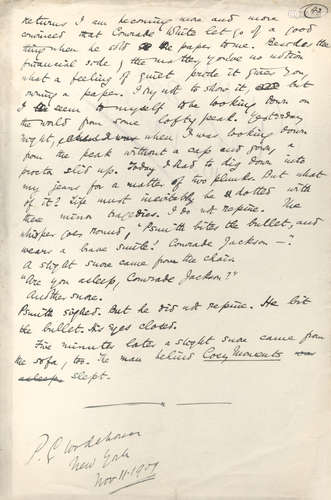 returns I am becoming more and more
convinced that Comrade White let go of a good
thing when he sold the paper to me. Besides the
financial side of the matter, you've no notion
what a feeling of quiet pride it gives you,
owning a paper. I try not to show it, but
I seem to myself to be looking down on
the world from some lofty peak. Yesterday
night, when I was looking down
from the peak without a cap and gown, a
proctor slid up. Today I had to dig down into
my jeans for a matter of two plunks. But what
of it? Life must inevitably be dotted with
these minor tragedies. I do not repine. The
whisper goes round, "Psmith bites the bullet, and
wears a brave smile! Comrade Jackson —"
A slight snore came from the chair.
"Are you asleep, Comrade Jackson?"
Another snore.
Psmith sighed. But he did not repine. He bit
the bullet. His eyes closed.
Five minutes later a slight snore came from
the sofa, too. The man behind Cosy Moments was
asleep slept.
P. G. Wodehouse
New York
Nov 11. 1909